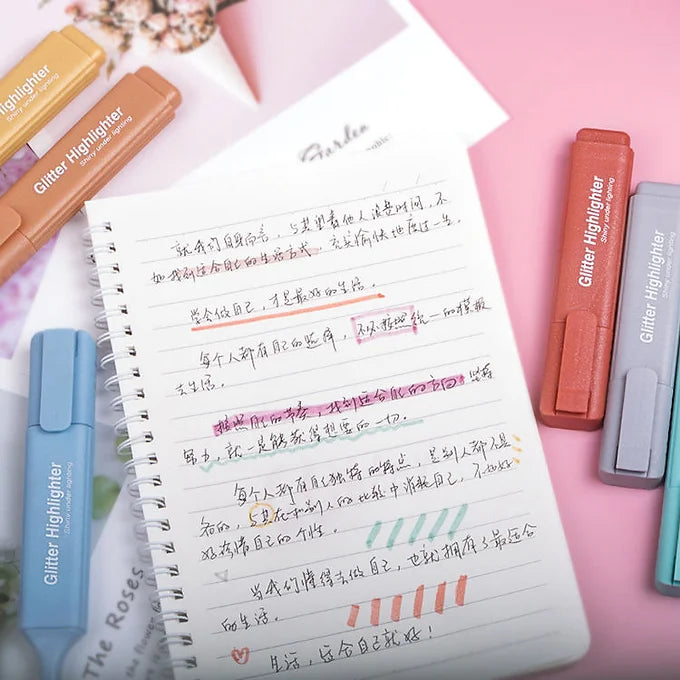 Glitter Highlighter
Shiny under lighting
Glitter Highlighter
Shiny under lighting
Garden
就我们自身而言，与其望着他人浪费时间，不
如找到适合自己的生活方式，充实愉快地度过一生。
学会做自己，才是最好的生活。
每个人都有自己的选择，不必按照统一的模板
去生活。
按照自己的节奏，找到适合自己的方向 坚持
努力，就一定能获得想要的一切。
每个人都有自己独特的特点，是别人都不具
有的，与其在和别人的比较中消耗自己，不如好
好珍惜自己的个性。
当我们懂得去做自己，也就拥有了最适合
的生活。
生活，适合自己就好！
Glitter Highlighter
Shiny under lighting
The Roses
Glitter Highlighter
Glitter Highlighter
Shiny under lighting